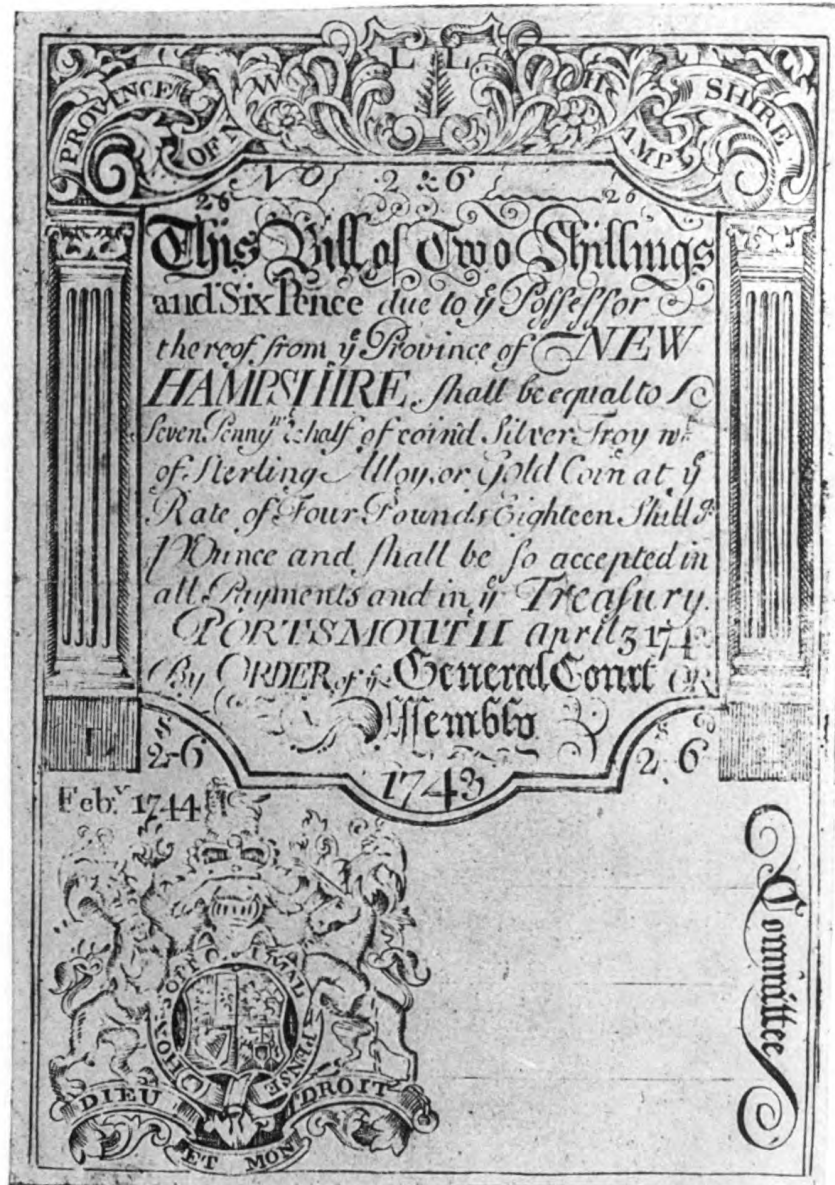 PROVINCE OF NEW HAMPSHIRE
L L
No 2 & 6
26 26
This Bill of Two Shillings
and Six Pence due to yͤ Poſſeſſor
thereof from yͤ Province of NEW
HAMPSHIRE, ſhall be equal to
ſeven Pennyʷᵗ & half of coin'd Silver Troy wᵗ
of Sterling Alloy, or Gold Coin at yͤ
Rate of Four Pounds Eighteen Shillgˢ
Ounce and ſhall be ſo accepted in
all Payments and in yͤ Treaſury.
PORTSMOUTH april 3 174
By ORDER of yͤ General Court OR
Aſſembly
S D
2-6
S D
2 6
1743
Febʸ 1744
HONI SOIT QUI MAL Y PENSE
DIEU ET MON DROIT
Committee